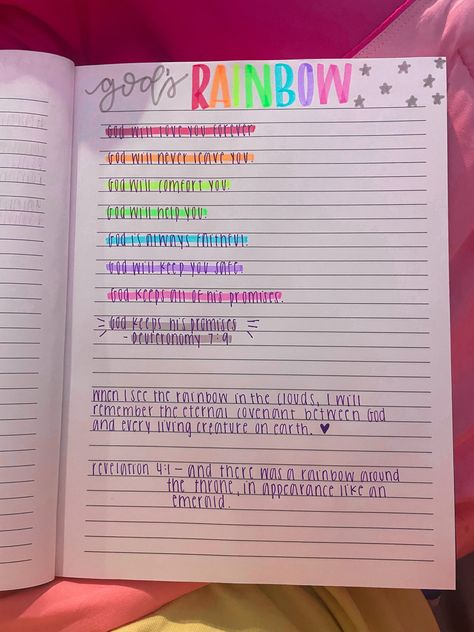 god's RAINBOW
God will love you forever
God will never leave you.
God will comfort you.
God will help you.
God is always faithful.
God will keep you safe.
God keeps all of his promises.
God keeps his promises
- Deuteronomy 7:9
when I see the rainbow in the clouds, I will
remember the eternal covenant between God
and every living creature on earth. ♥
revelation 4:1 – and there was a rainbow around
the throne, in appearance like an
emerald.